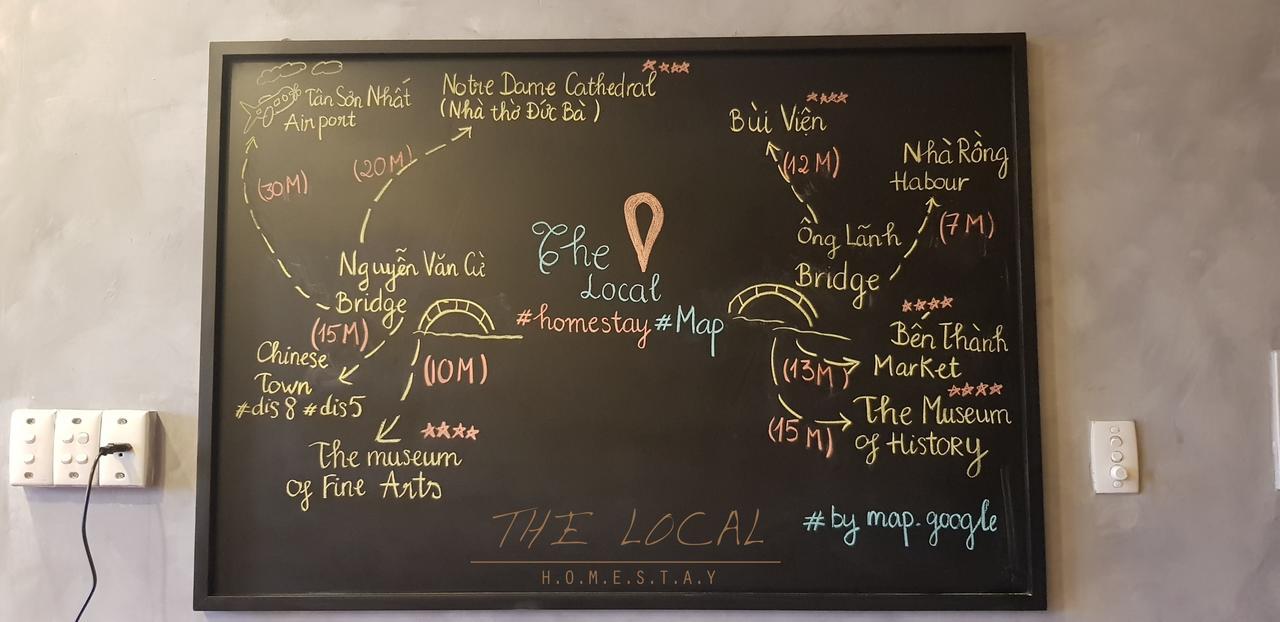 Tân Sơn Nhất
Airport
(30M)
Notre Dame Cathedral
(Nhà thờ Đức Bà)
(20M)
Nguyễn Văn Cừ
Bridge
(15M)
Chinese
Town
#dis 8 #dis 5
(10M)
The museum
of Fine Arts
The
Local
#homestay #Map
Bùi Viện
(12M)
Nhà Rồng
Habour
(7M)
Ông Lãnh
Bridge
Bến Thành
Market
(13M)
The Museum
of History
(15M)
#by map.google
THE LOCAL
H.O.M.E.S.T.A.Y